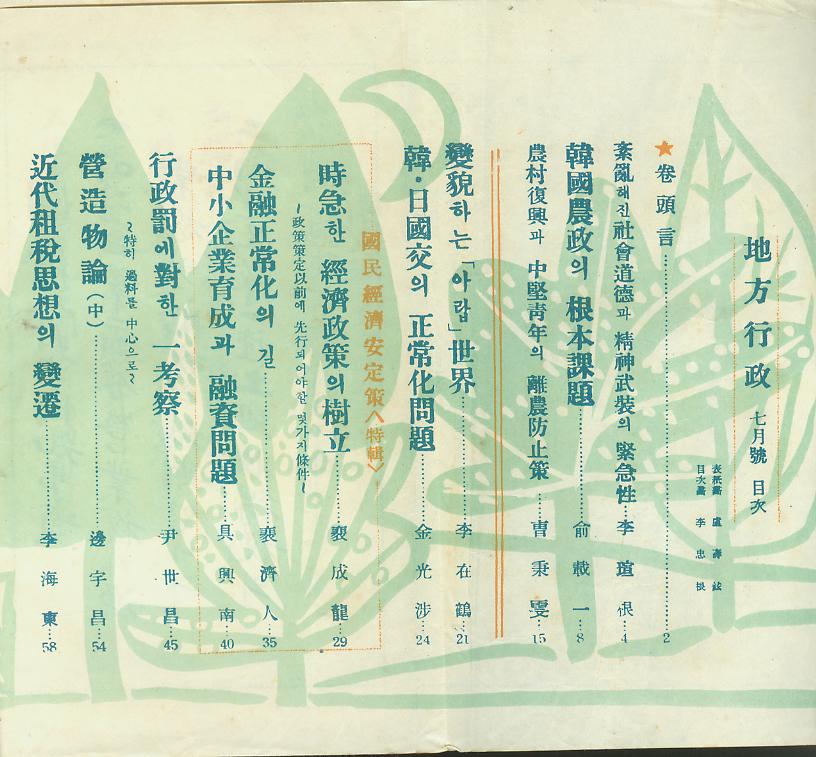 地方行政 七月號 目次
表紙畵 盧壽鉉
目次畵 李忠根
★卷頭言……2
紊亂해진 社會道德과 精神武裝의 緊急性…李瑄根…4
韓國農政의 根本課題…兪載一…8
農村復興과 中堅靑年의 離農防止策…曺秉雯…15
變貌하는「아랍」世界……李在鶴…21
韓·日國交의 正常化問題……金光涉…24
國民經濟安定策〈特輯〉
時急한 經濟政策의 樹立……裵成龍…29
~政策策定以前에 先行되어야 할 몇가지 條件~
金融正常化의 길……裵濟人…35
中小企業育成과 融資問題…具興南…40
行政罰에 對한 一考察……尹世昌…45
~特히 過料를 中心으로~
營造物論(中)……邊宇昌…54
近代租稅思想의 變遷……李海東…58